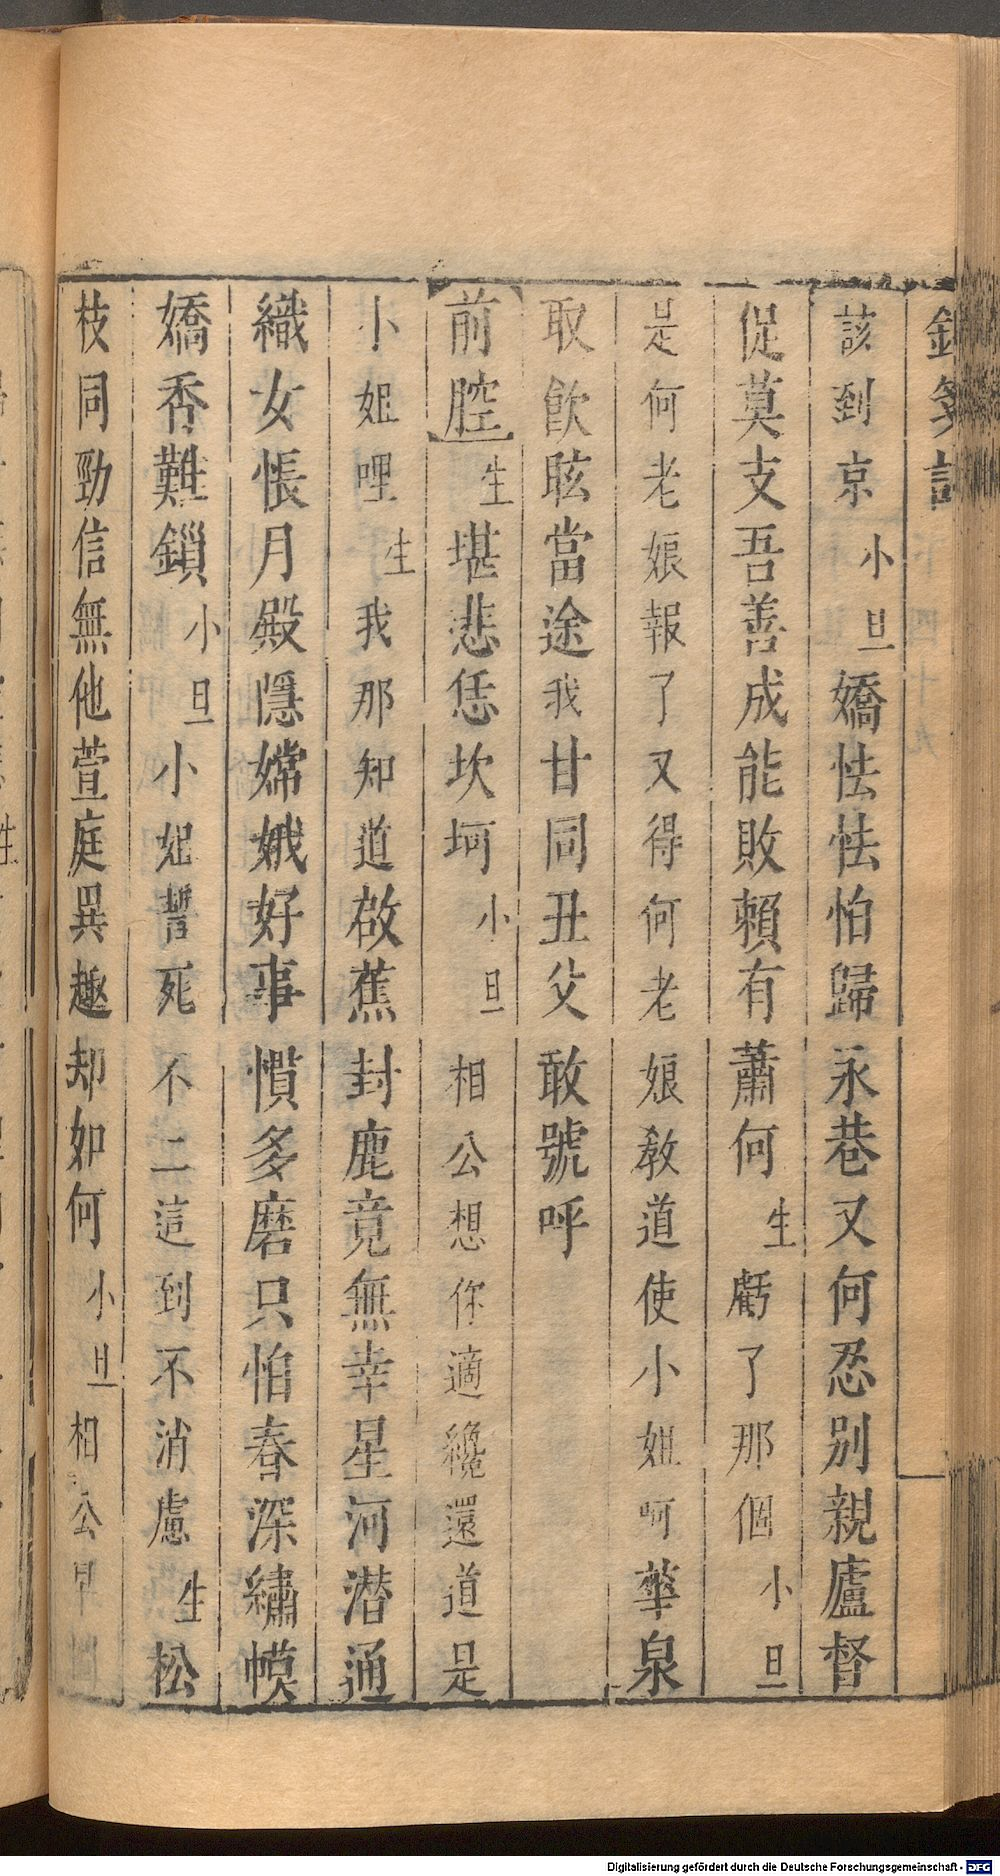 該到京小旦嬌怯怯怕歸永巷又何忍別親廬督
促莫支吾善成能敗賴有蕭何生虧了那個小旦
是何老娘報了又得何老娘教道使小姐呵華泉
取飲眩當途我甘同丑父敢號呼
前腔生堪悲恁坎坷小旦相公想你適纔還道是
小姐哩生我那知道啟蕉封鹿竟無幸星河潛通
織女悵月殿隱嫦娥好事慣多磨只怕春深繡幙
嬌香難鎖小旦小姐誓死不二這到不消慮生松
枝同勁信無他萱庭異趣却如何小旦相公早
Digitalisierung gefördert durch die Deutsche Forschungsgemeinschaft - DFG